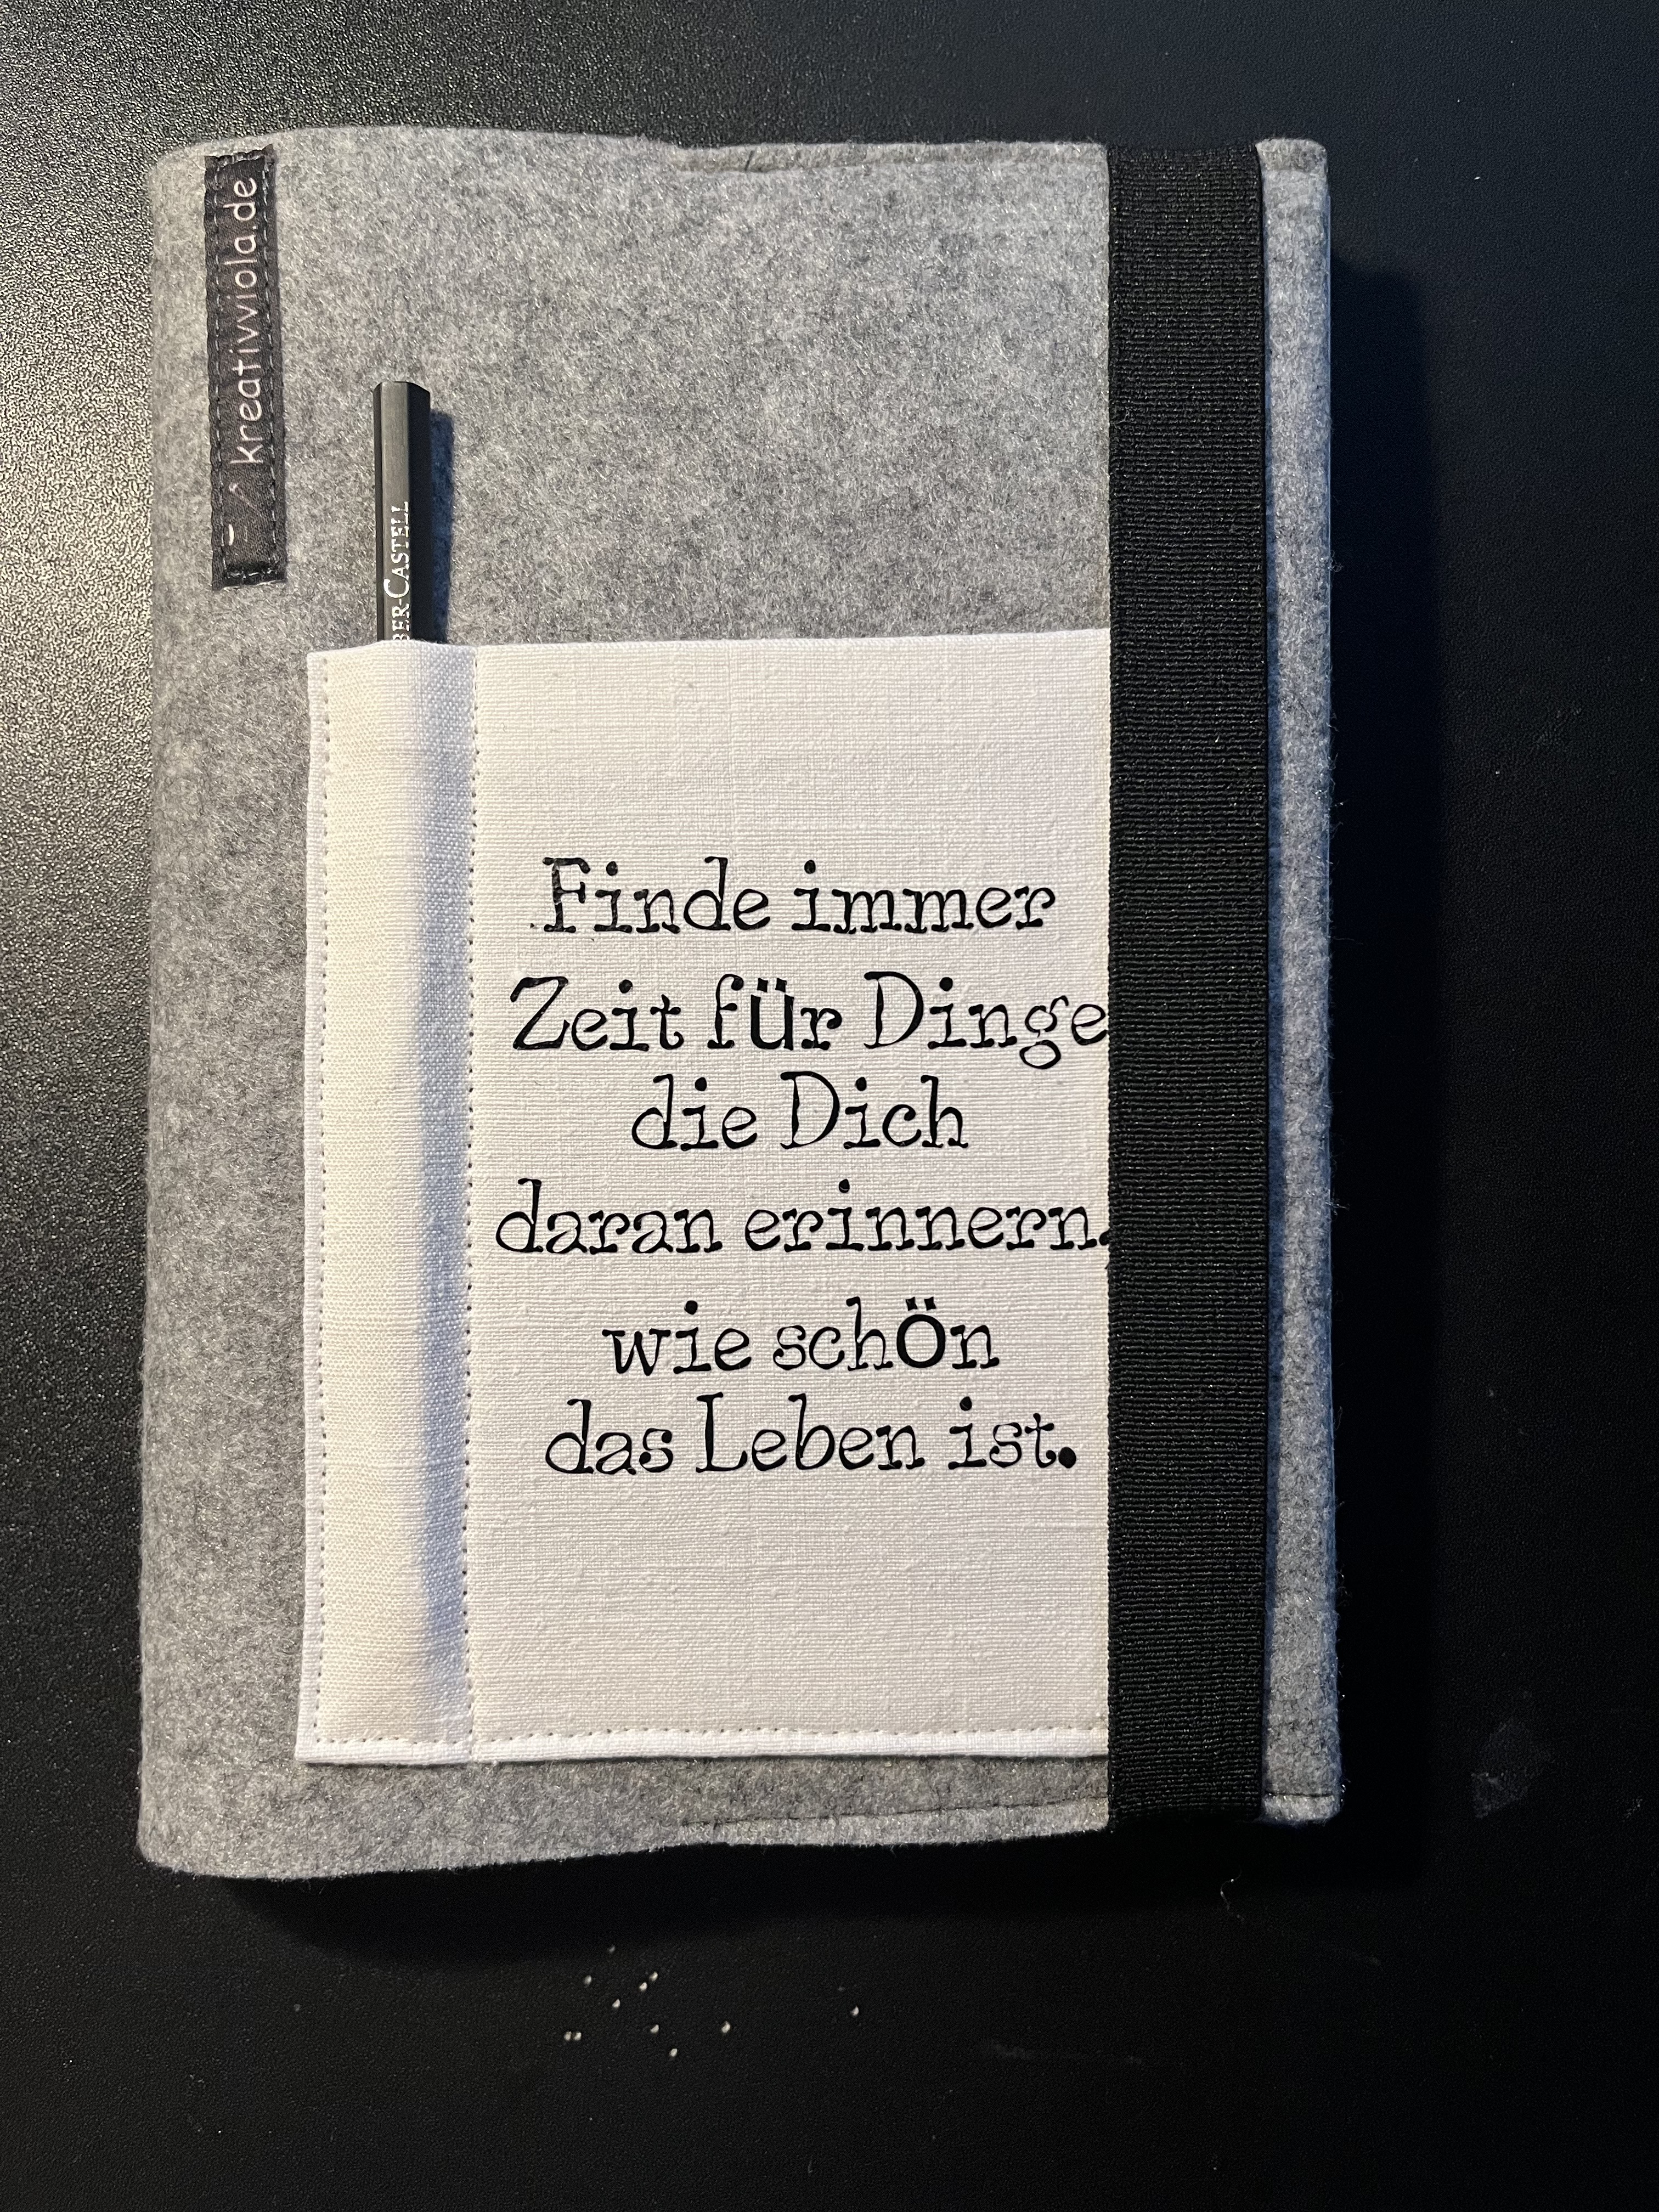 kreativviola.de
BER-CASTELL
Finde immer
Zeit für Dinge
die Dich
daran erinnern,
wie schön
das Leben ist.